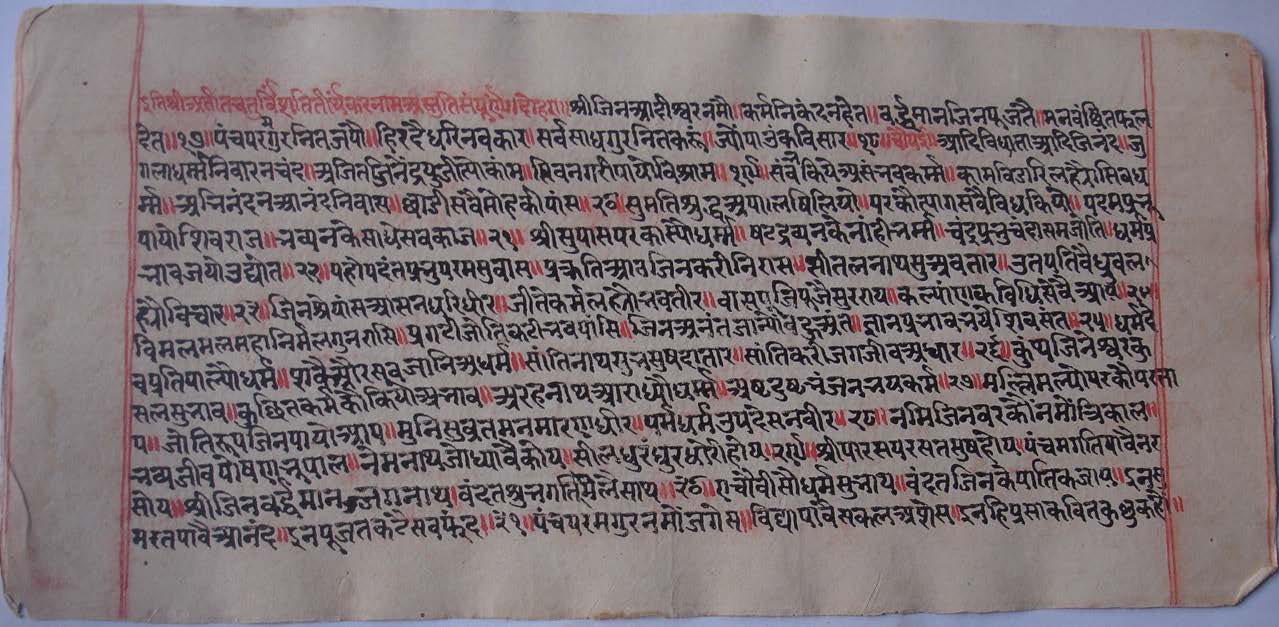 इति श्री अतीत चतुर्विंशति तीर्थंकर नाम अस्तुति संपूर्ण ॥ दोहरा ॥ श्री जिन आदीश्वर नमौ ॥ कर्म निकंदन हेत ॥ वर्द्धमान जिन पूजतै ॥ मन वंछित फल
देत ॥ १७ ॥ पंच परम गुर नित जपौ ॥ हिरदै धरि नवकार ॥ सर्व साध गुर नित कहूं ॥ ज्यौं पाउं कवि सार ॥ १८ ॥ चौपई ॥ आदि विधाता आदि जिनंद ॥ जु
गला धर्म निवारन चंद ॥ अजित जिनेंद्र काम ॥ शिव नगरी विश्राम ॥ १९ ॥ संभव किये असंभव कर्म ॥ काम विडारि
अभिनंदन आनंद निवास ॥ सवै मोह की पास ॥ २० ॥ सुमति अपालि लियो ॥ पर कौ त्याग सवै विध कियौ ॥ पदम प्रभू
पायो शिवराज ॥ भव्यन के साधे सब काज ॥ २१ ॥ श्री सुपास परकास्यौ धर्म ॥ षट द्रव्यन के नांही भर्म ॥ चंद प्रभु चंदा सम जोति ॥ धर्म प्र
भाव जयो उद्योत ॥ २२ ॥ पहोपदंत प्रभु परम सुवास ॥ प्रकृति आठ जिन करी निरास ॥ सीतल नाथ सु अवतार ॥ उतपति वेध्रुवल
विचार ॥ २३ ॥ जिन श्रेयांस आसन धरि धीर ॥ जीते कर्म भव तीर ॥ वासुपूजि पूजै सुर राय ॥ कल्याणक विधि सेवै आय ॥ २४ ॥
विमल मल महा निर्मल गुन रासि ॥ प्रगटी जोति करी भव पांसि ॥ जिन अनंत अंत ॥ ज्ञान प्रभाव भये शिव संत ॥ २५ ॥ धर्म दे
व प्रतिपाल्यौ धर्म ॥ और सब जानि अधर्म ॥ सांतिनाथ प्रभु सुष दातार ॥ सांति करी जग जीव अधार ॥ २६ ॥ कुंथ जिनेश्वर कु
सल सुभाव ॥ कुत्सित कर्म कौ कियो अभाव ॥ अरहनाथ आराध्यो धर्म ॥ अष्ट दुष्ट भंजन भय कर्म ॥ २७ ॥ मल्लि पर कौ परता
प ॥ जोति रूप जिन पायो आप ॥ मुनि सुव्रत मन मारग धीर ॥ धर्म उपदेसन वीर ॥ २८ ॥ नमि जिनवर कौ नमौं त्रिकाल ॥
भव्य जीव पोषण भूपाल ॥ नेमनाथ जो ध्यावै कोय ॥ सील धुरंधर धोरी होय ॥ २९ ॥ श्री पारस परसत सुष होय ॥ पंचम गति पावै नर
सोय ॥ श्री जिन वर्द्धमान जगनाथ ॥ वंदत शुभ गति मेले साथ ॥ ३० ॥ ए चौवीसौ धर्म सुनाथ ॥ वंदत जिन के पातिक जाय ॥ इन सु
मरत पावै आनंद ॥ इन पूजत कटै सब फंद ॥ ३१ ॥ पंच परम गुर नमो जगेस ॥ विद्या पावै सकल असेस ॥ इनहि प्रसाद कवित कुछ कहौं ॥